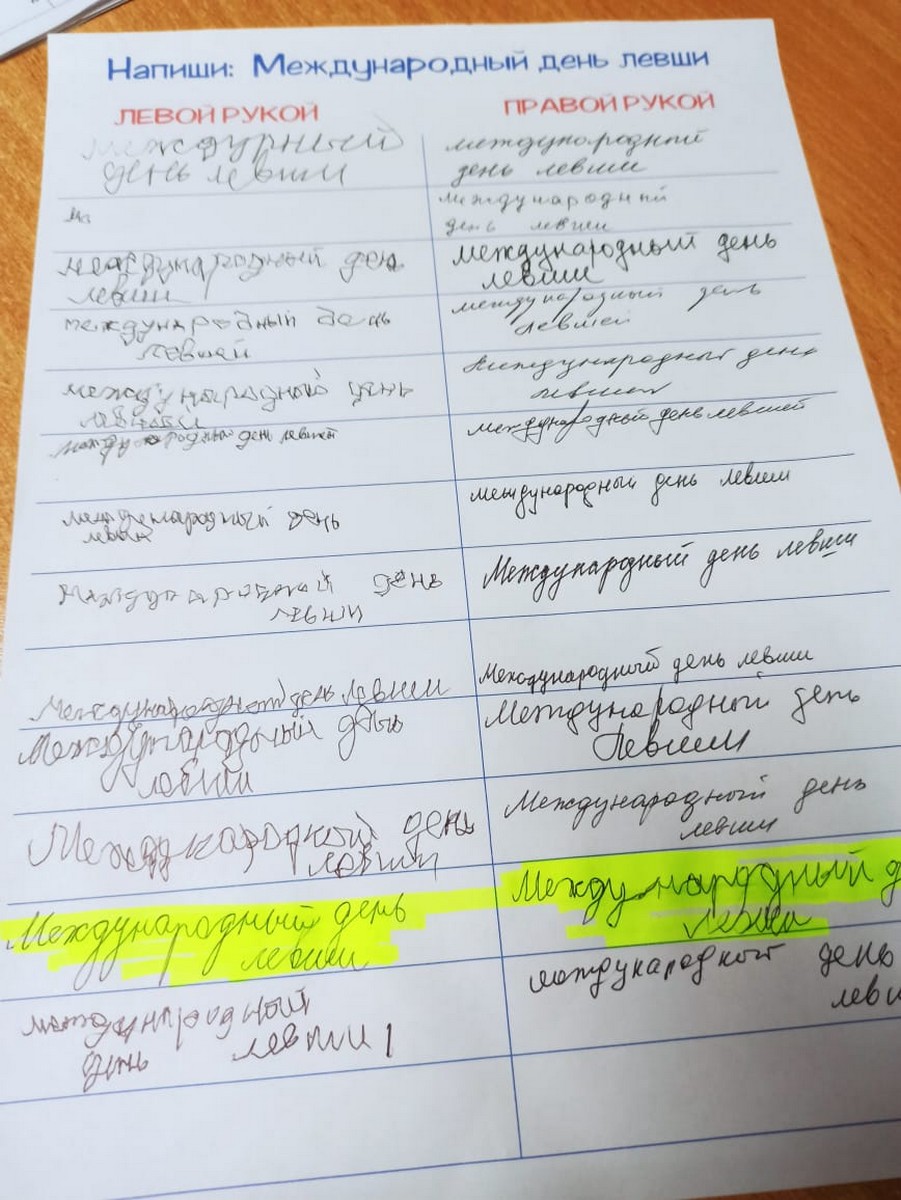 Напиши: Международный день левши
ЛЕВОЙ РУКОЙ
ПРАВОЙ РУКОЙ
Междурный
день левши
международный
день левши
ме
международный
день левши
международный день
левши
международный день
левши
международный день
левшай
международный день
левшей
международный день
международный день
международный день левшей
международный день левшей
международный день
международный день левши
международный день
левши
Международный день левши
Международный день левши
Международный день левши
Международный день
левши
Международный день
левши
Международный день
левши
Международный день
левши
Международный день
левши
Между народный д
левши
международный
день левши!
международный день
левш